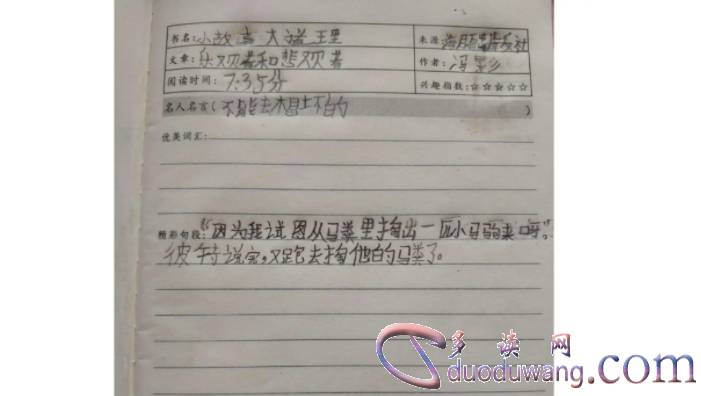 书名: 小故事大道理
来源: 海月出版社
文章: 乐观者和悲观者
作者: 冯彭
阅读时间: 7:35分
兴趣指数: ☆☆☆☆☆
名人名言( 不能去木 上不白的 )
优美词汇:
精彩句段: "因为我试图从马粪里掏出一匹小马驹来呀"
彼特说完,又跑去掏他的马粪了。
多读网
duoduwang.com